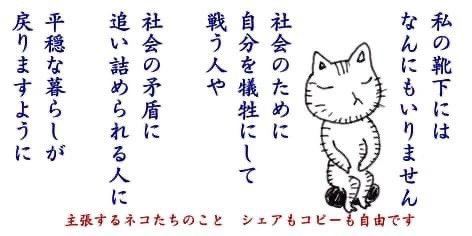 私の靴下には
なんにもいりません
社会のために
自分を犠牲にして
戦う人や
社会の矛盾に
追い詰められる人に
平穏な暮らしが
戻りますように
主張するネコたちのこと　シェアもコピーも自由です